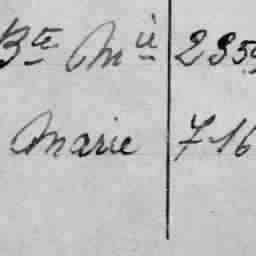 Bte Mie 2859
Marie 716